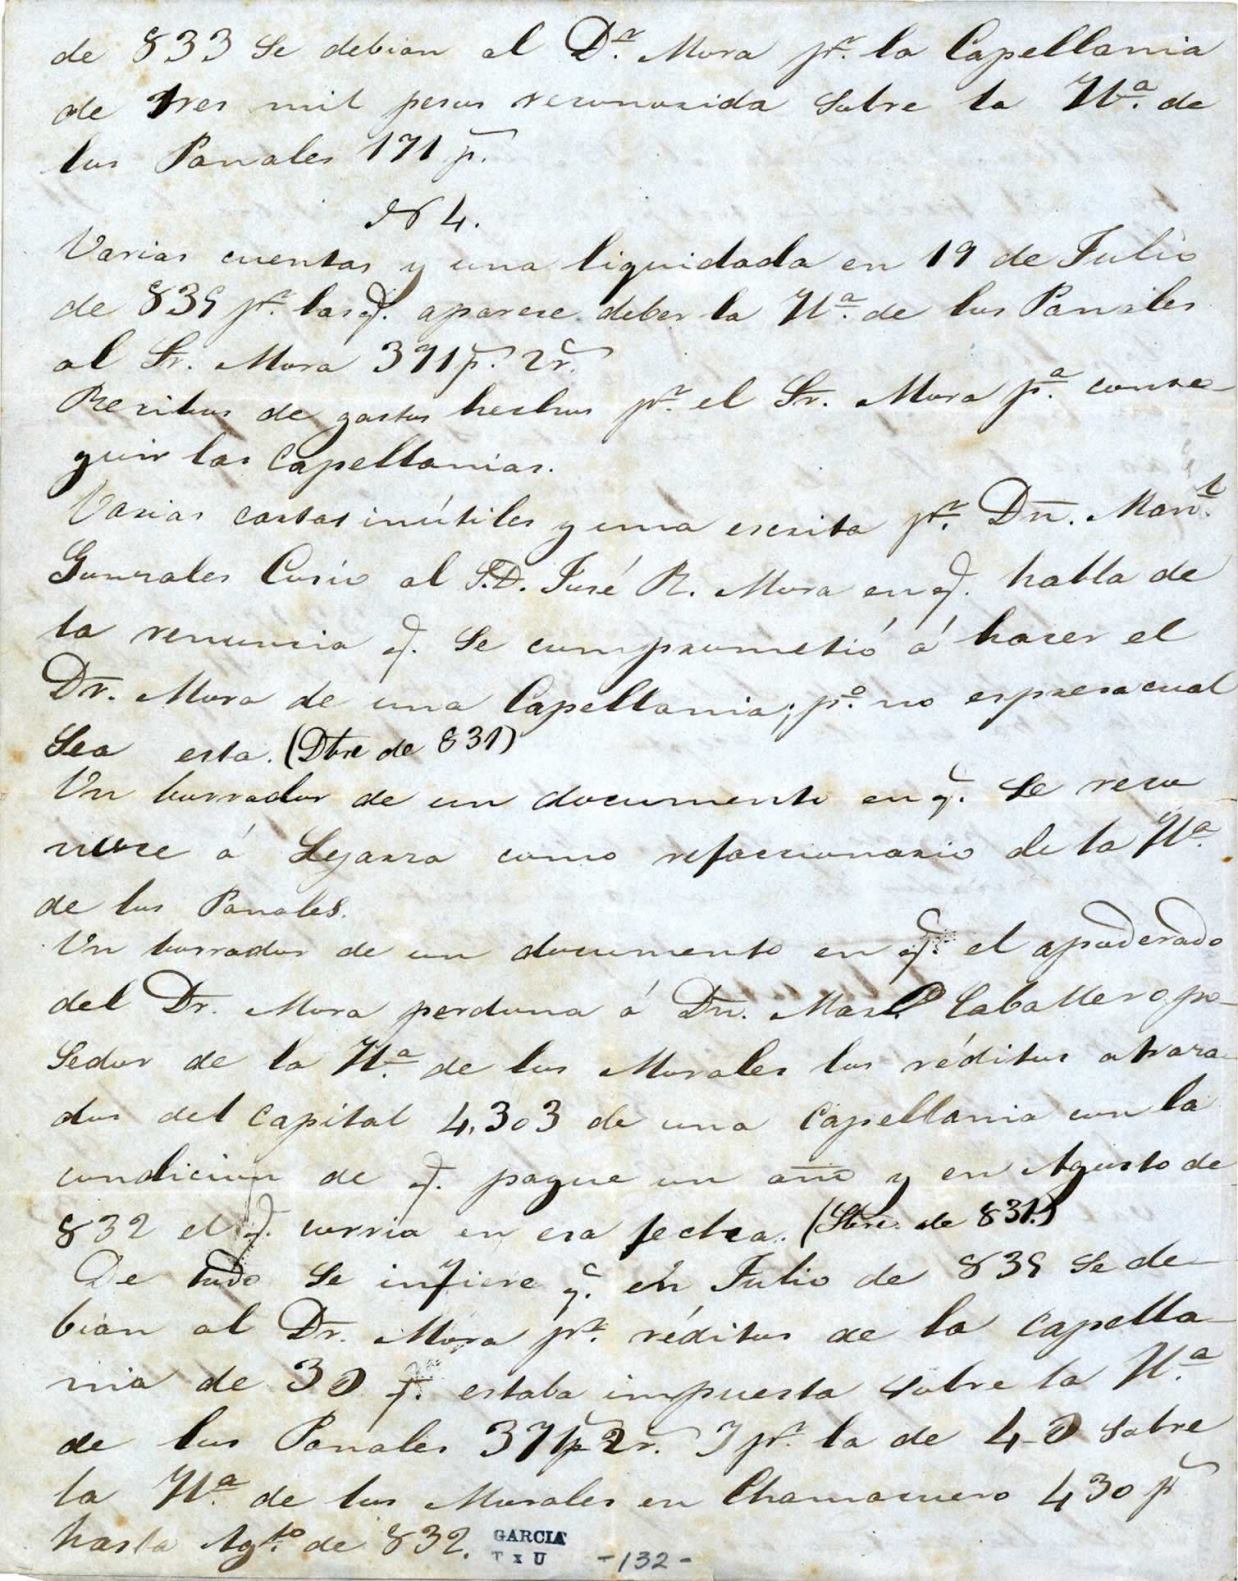 de 833 se debian al D.r Mora p.r la Capellania
de tres mil pesos reconosida sobre la H.a de
los Panales 171 p.
N 4.
Varias cuentas y una liquidada en 19 de Julio
de 835 p.r las q. aparese deber la H.a de los Panales
al Sr. Mora 371 p. 2 r.
Recibos de gastos hechos p.r el Sr. Mora p.a conse-
guir las Capellanias.
Varias cartas inútiles y una escrita p.r Dn. Man.l
Gonzales Cosio al S.D. José R. Mora en q. habla de
la renuncia q. se comprometió á hacer el
Dr. Mora de una Capellania; p.o no espresa cual
sea esta. (Dbre de 831)
Un borrador de un documento en q. se reco
nose á Lejarza como refaccionario de la H.a
de los Panales.
Un borrador de un documento en q. el apoderado
del Dr. Mora perdona á Dn. Man.l Caballero po-
sedor de la H.a de los Morales los réditos atraza-
dos del capital 4,303 de una Capellania con la
condicion de q. pague un año y en Agosto de
832 el q. corria en esa fecha. (Stre. de 831.)
De todo se infiere q. en Julio de 835 se de-
bian al Dr. Mora p.r réditos de la capella-
nia de 30 q. estaba impuesta sobre la H.a
de los Panales 371 p 2 r. Y p.r la de 40 sobre
la H.a de los Morales en Chamacuero 430 p
hasta Ag.to de 832.
GARCIA
T x U
-132-